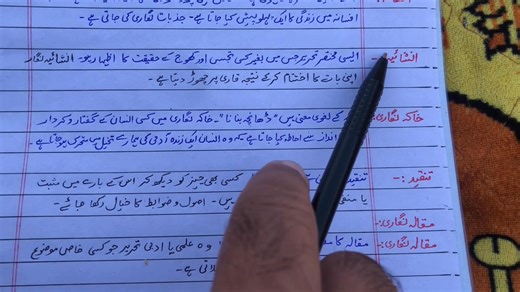 افسانہ میں زندگی کا ایک پہلو پیش کیا جاتا ہے۔ جذبات نگاری کی جاتی ہے۔
انشائیہ:- ایسی مختصر تحریر جس میں بغیر کسی تجسس اور کھوج کے حقیقت کا اظہار ہو۔ انشائیہ نگار
اپنی بات کا اختتام کرکے نتیجہ قاری پر چھوڑ دیتا ہے۔
خاکہ نگاری: کے لغوی معنی ہیں "ڈھانچہ بنانا"۔ خاکہ نگاری میں کسی انسان کے گفتار و کردار
انداز سے احاطہ کیا جاتا ہے کہ وہ انسان ایک زندہ آدمی کی تخیل میں متحرک ہوجاتا ہے۔
تنقید:- تنقید کسی بھی چیز کو دیکھ کر اس کے بارے میں مثبت
یا منفی اصول و ضوابط کا خیال رکھا جائے۔
مقالہ نگاری:
مقالہ نگاری:- مقالہ کا وہ علمی یا ادبی تحریر جو کسی خاص موضوع
ہے۔